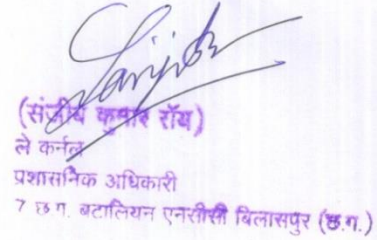 (संजीव कुमार रॉय)
ले कर्नल
प्रशासनिक अधिकारी
7 छ ग. बटालियन एनसीसी बिलासपुर (छ.ग.)